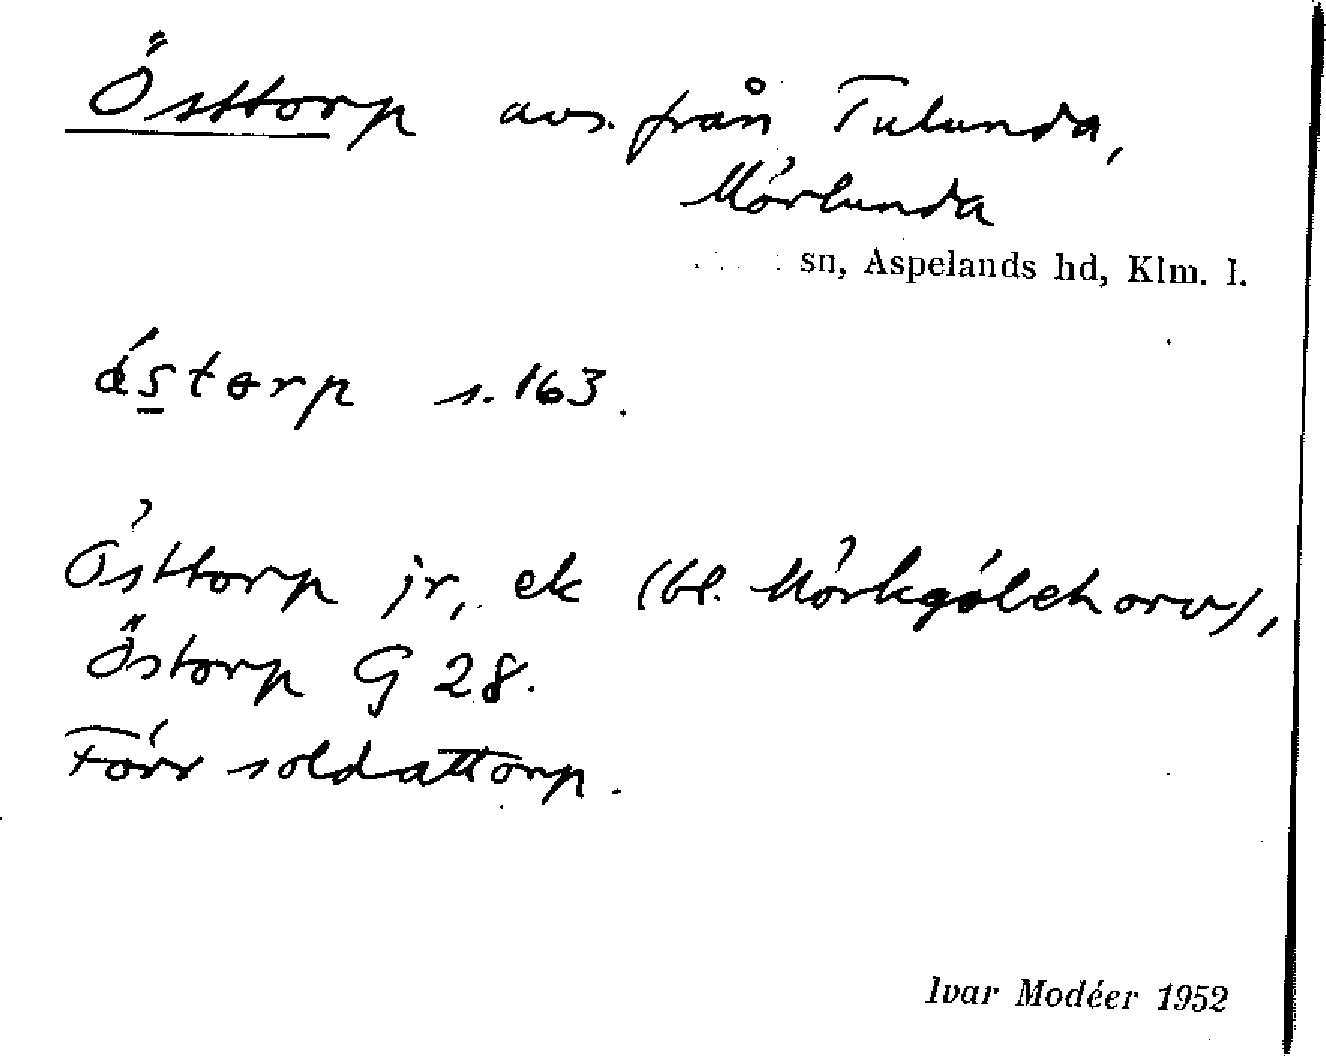 Östtorp avs. från Tulunda,
Mörlunda
sn, Aspelands hd, Klm. l.
s. 163.
Östtorp jr, ek (bl.
Östorp G 28.
Förr soldattorp.
Ivar Modéer 1952